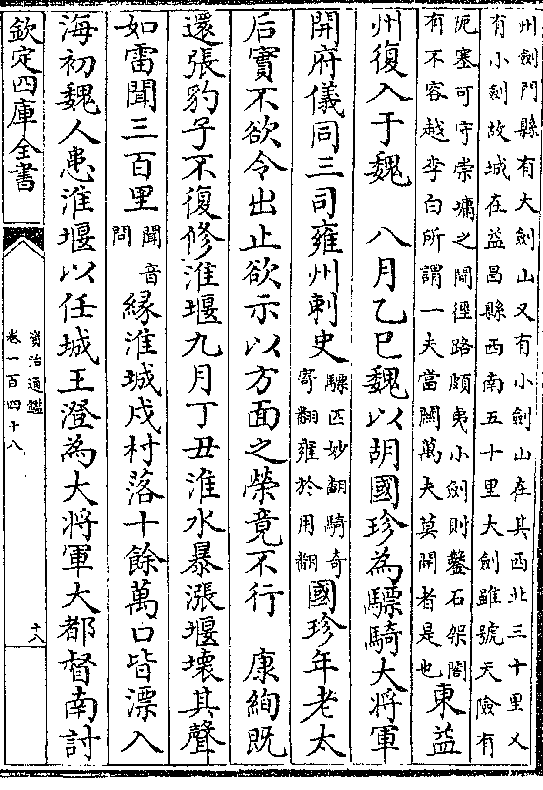 州劍門縣有大劍山又有小劍山在其西北三十里又
有小劍故城在益昌縣西南五十里大劍雖號天險有
阨塞可守崇墉之間徑路頗夷小劍則鑿石架閣
有不容越李白所謂一夫當關萬夫莫開者是也東益
州復入于魏　八月乙巳魏以胡國珍為驃騎大將軍
開府儀同三司雍州刺史驃匹妙翻騎奇寄翻雍於用翻國珍年老太
后實不欲令出止欲示以方面之榮竟不行　康絢既
還張豹子不復修淮堰九月丁丑淮水暴漲堰壞其聲
如雷聞三百里聞音問緣淮城戍村落十餘萬口皆漂入
海初魏人患淮堰以任城王澄為大將軍大都督南討
欽定四庫全書
資治通鑑
卷一百四十八
十八